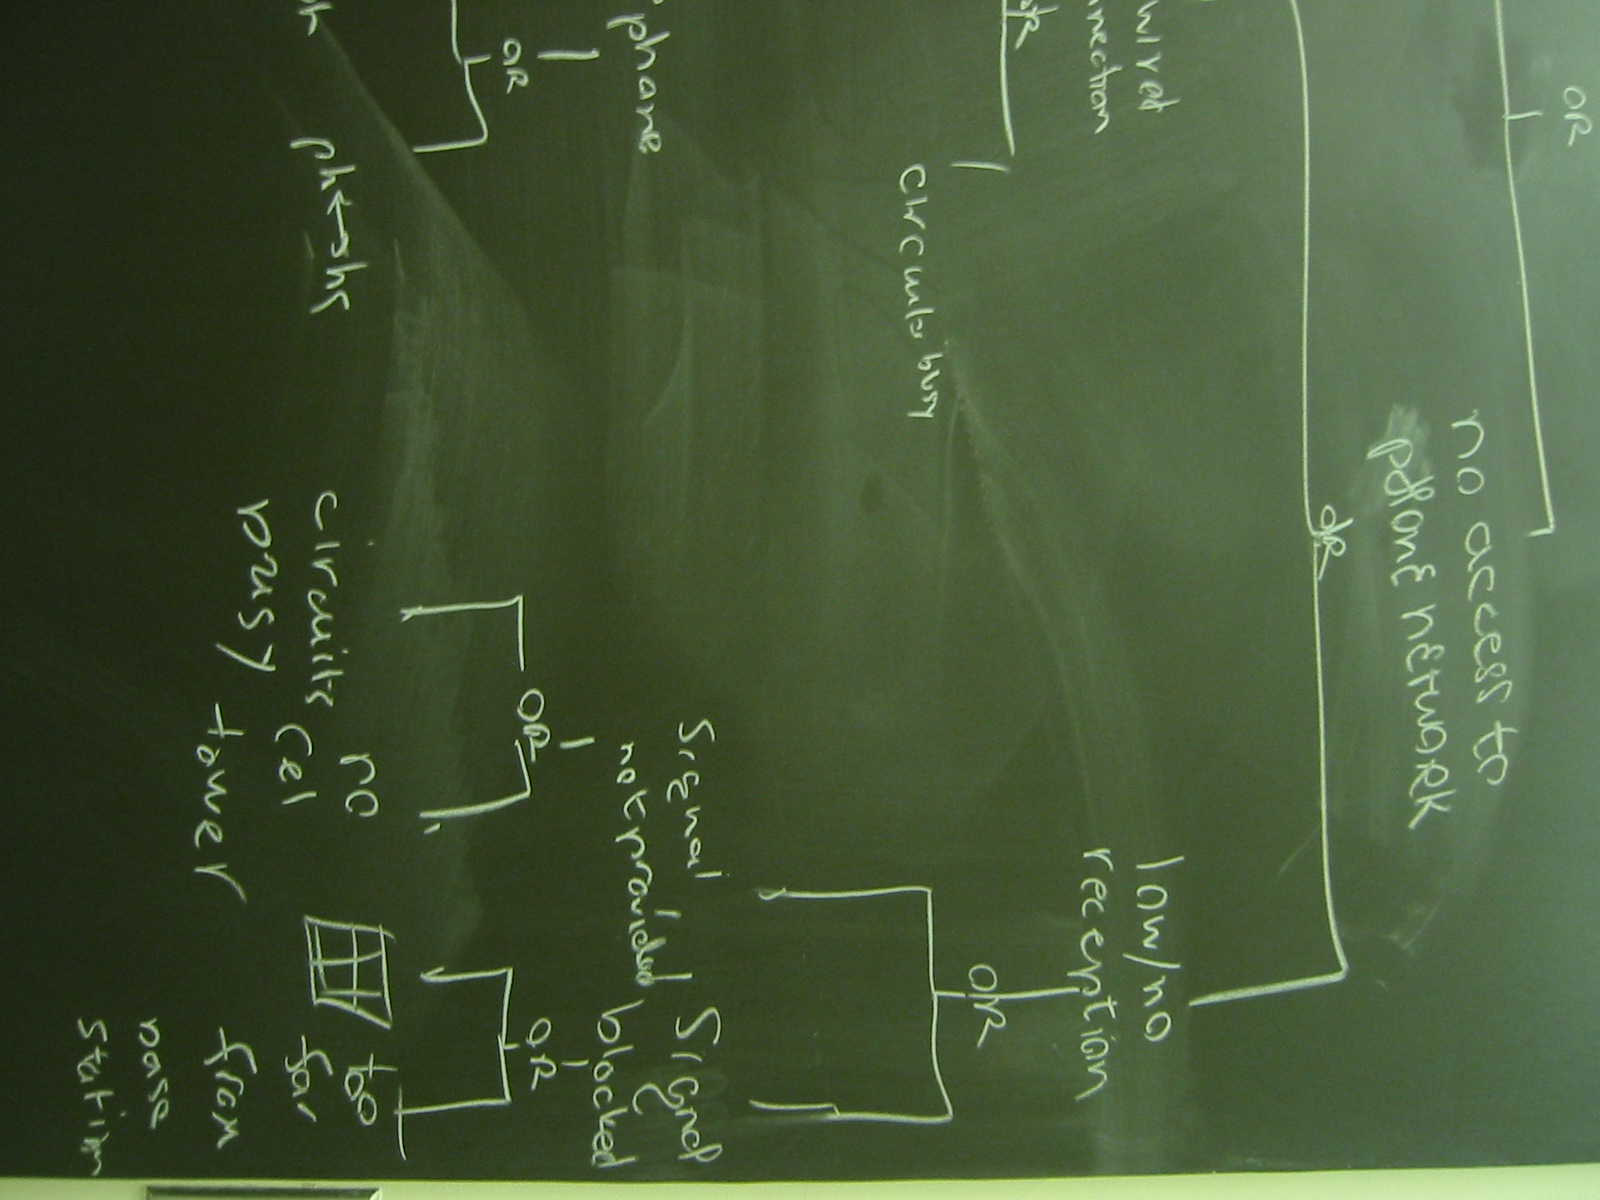 OR
no access to
phone network
OR
wired
nection
OR
low/no
reception
OR
circuits busy
phone
OR
signal
not provided
signal
blocked
OR
OR
circuits
busy
no
cel
tower
too
far
from
base
station